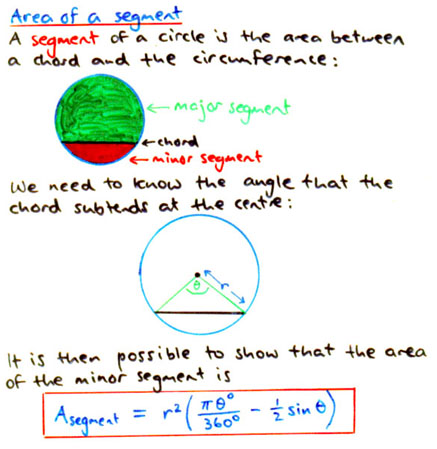 Area of a segment
A segment of a circle is the area between
a chord and the circumference:
← major segment
← chord
← minor segment
We need to know the angle that the
chord subtends at the centre:
r
θ
It is then possible to show that the area
of the minor segment is
A segment = r² ( πθ° / 360° - ½ sin θ )